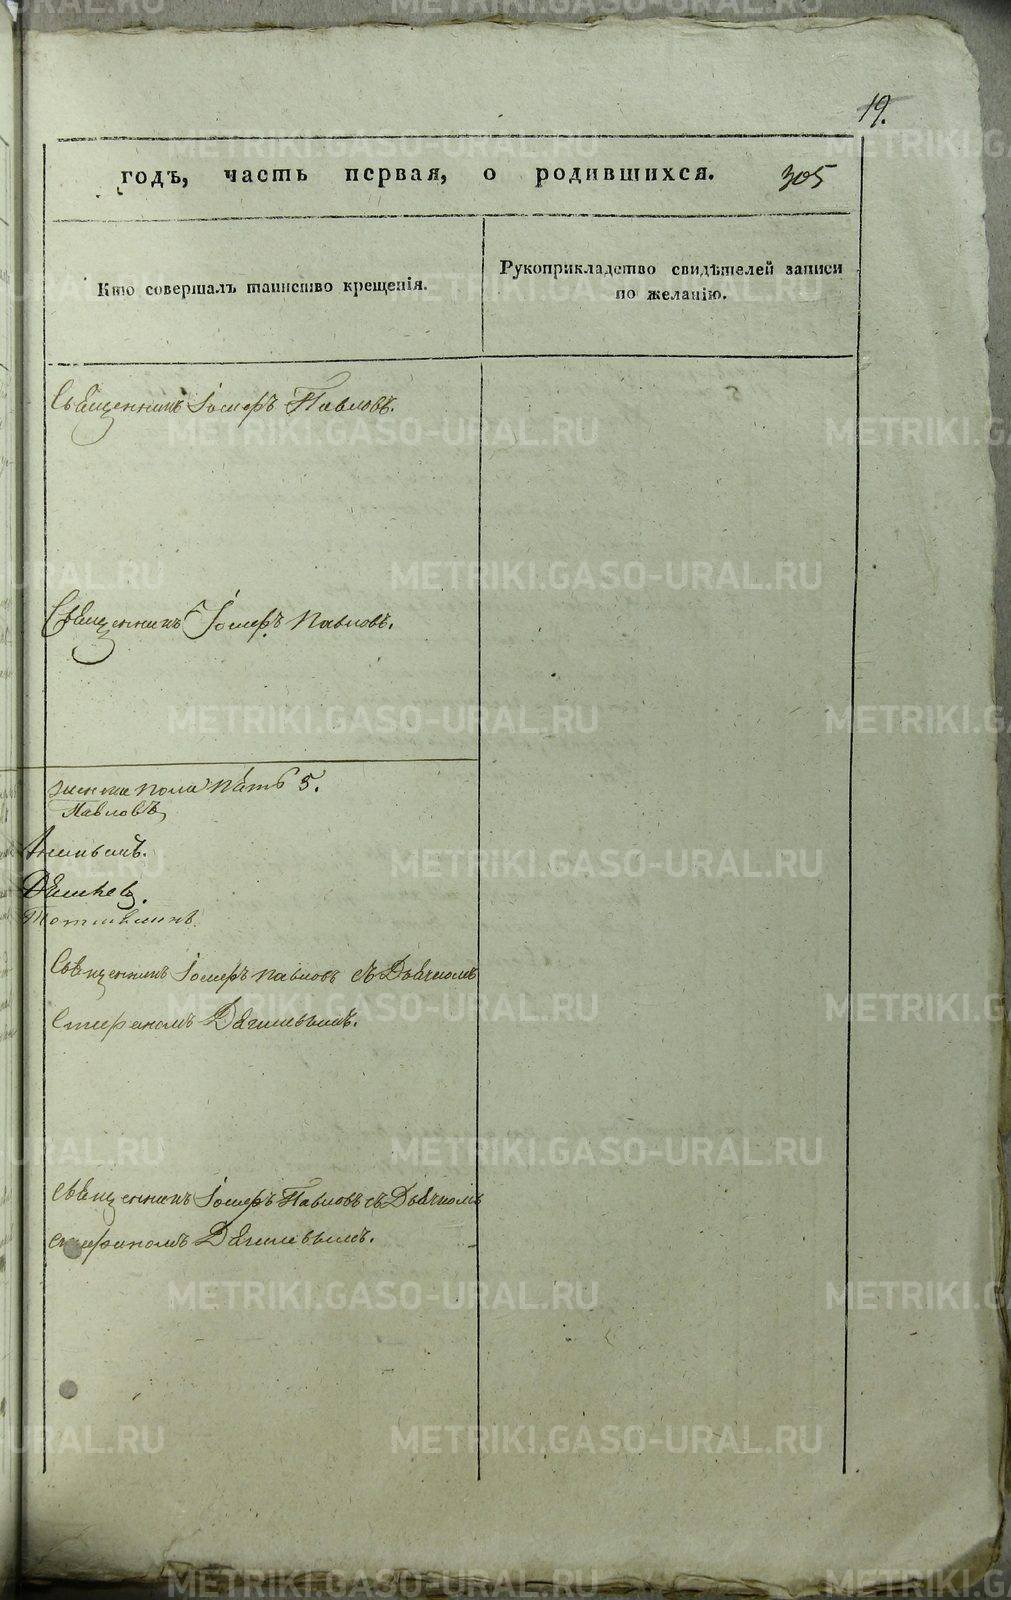 19.
годъ, часть первая, о родившихся. 305
Кто совершалъ таинство крещенія.
Рукоприкладство свидѣтелей записи
по желанію.
Священникъ Іосифъ Павловъ.
Священникъ Іосифъ Павловъ.
женска пола пять 5.
Павловъ
Священникъ Іосифъ Павловъ съ Дьячкомъ
Стефаномъ Дягилевымъ.
Священникъ Іосифъ Павловъ съ Дьячкомъ
Стефаномъ Дягилевымъ.
METRIKI.GASO-URAL.RU